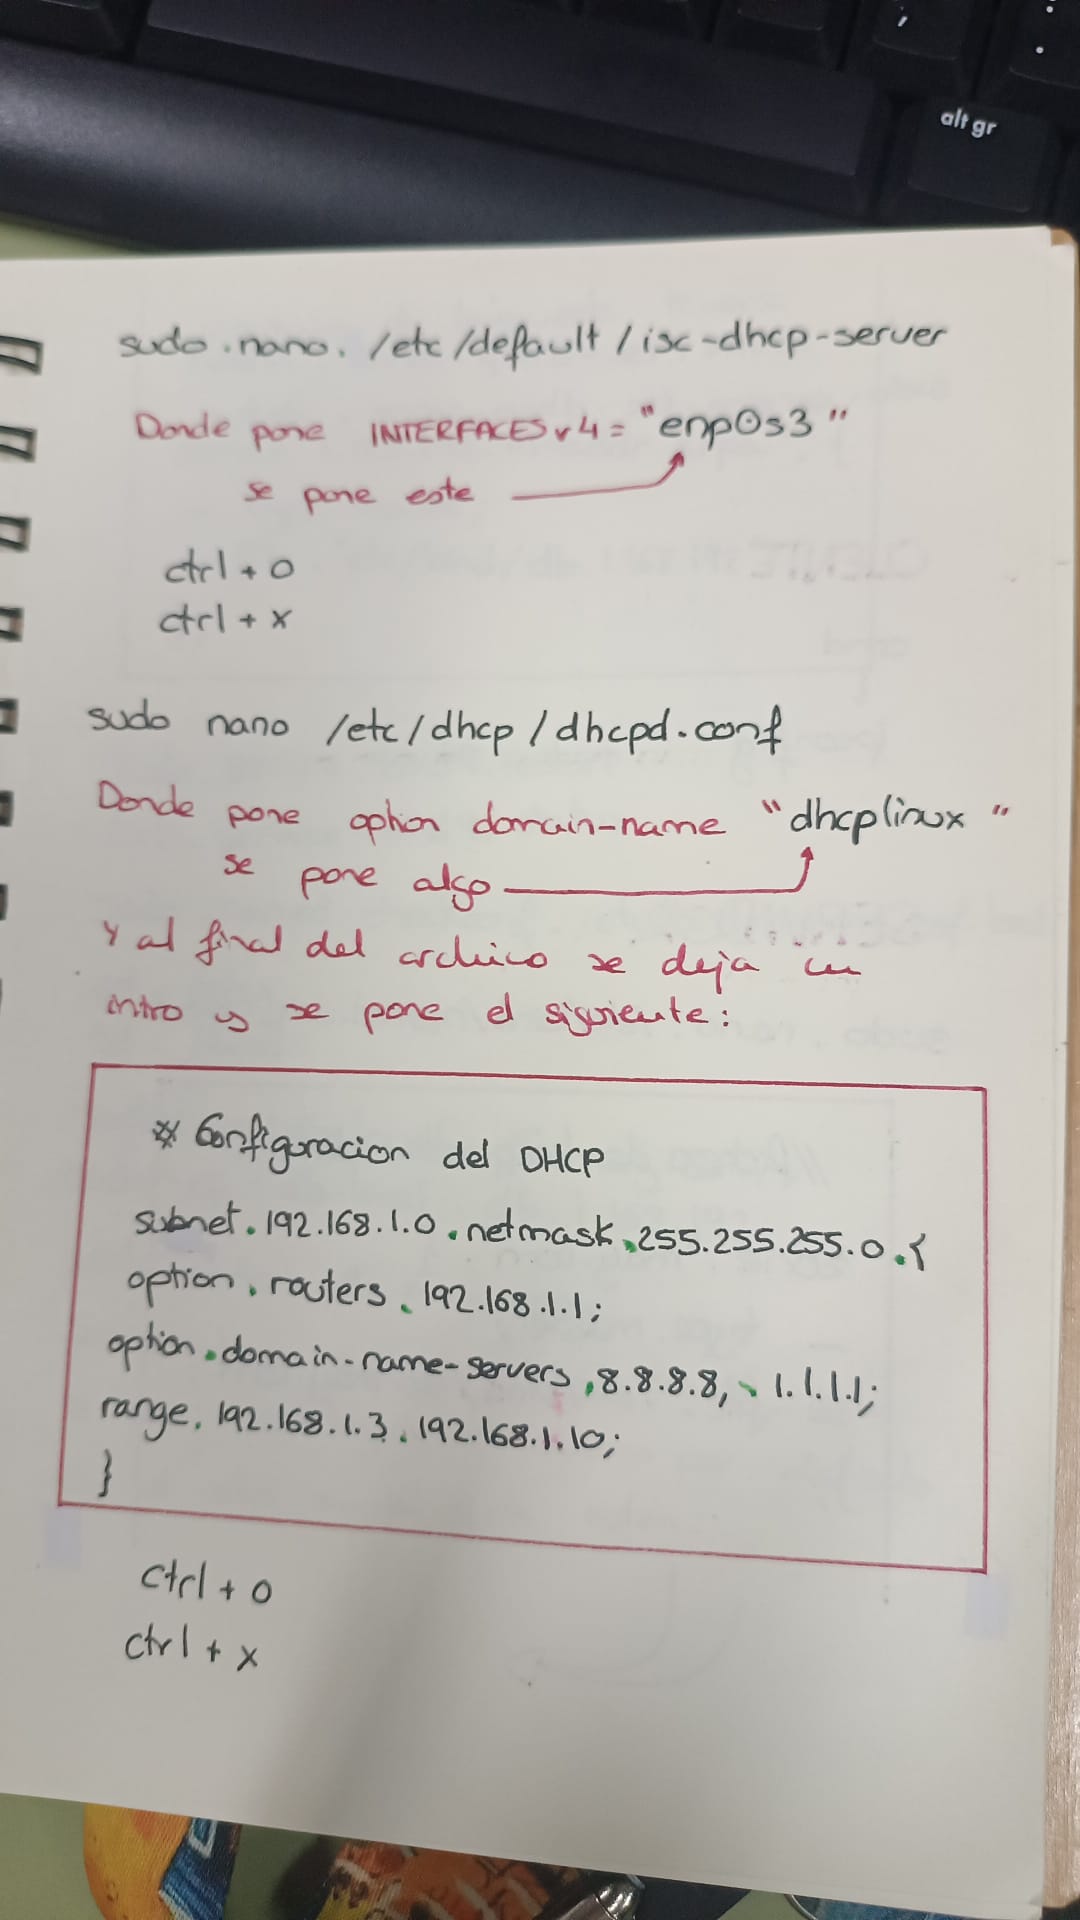 alt gr
sudo . nano . /etc/default/isc-dhcp-server
Donde pone INTERFACESv4 = "enp0s3"
se pone este
ctrl + o
ctrl + x
sudo nano /etc/dhcp/dhcpd.conf
Donde pone option domain-name "dhcplinux"
se pone algo
Y al final del archivo se deja un
intro y se pone el siguiente:
# Configuracion del DHCP
subnet . 192.168.1.0 . netmask . 255.255.255.0 . {
option . routers . 192.168.1.1;
option . domain-name-servers . 8.8.8.8, . 1.1.1.1;
range . 192.168.1.3 . 192.168.1.10;
}
ctrl + o
ctrl + x